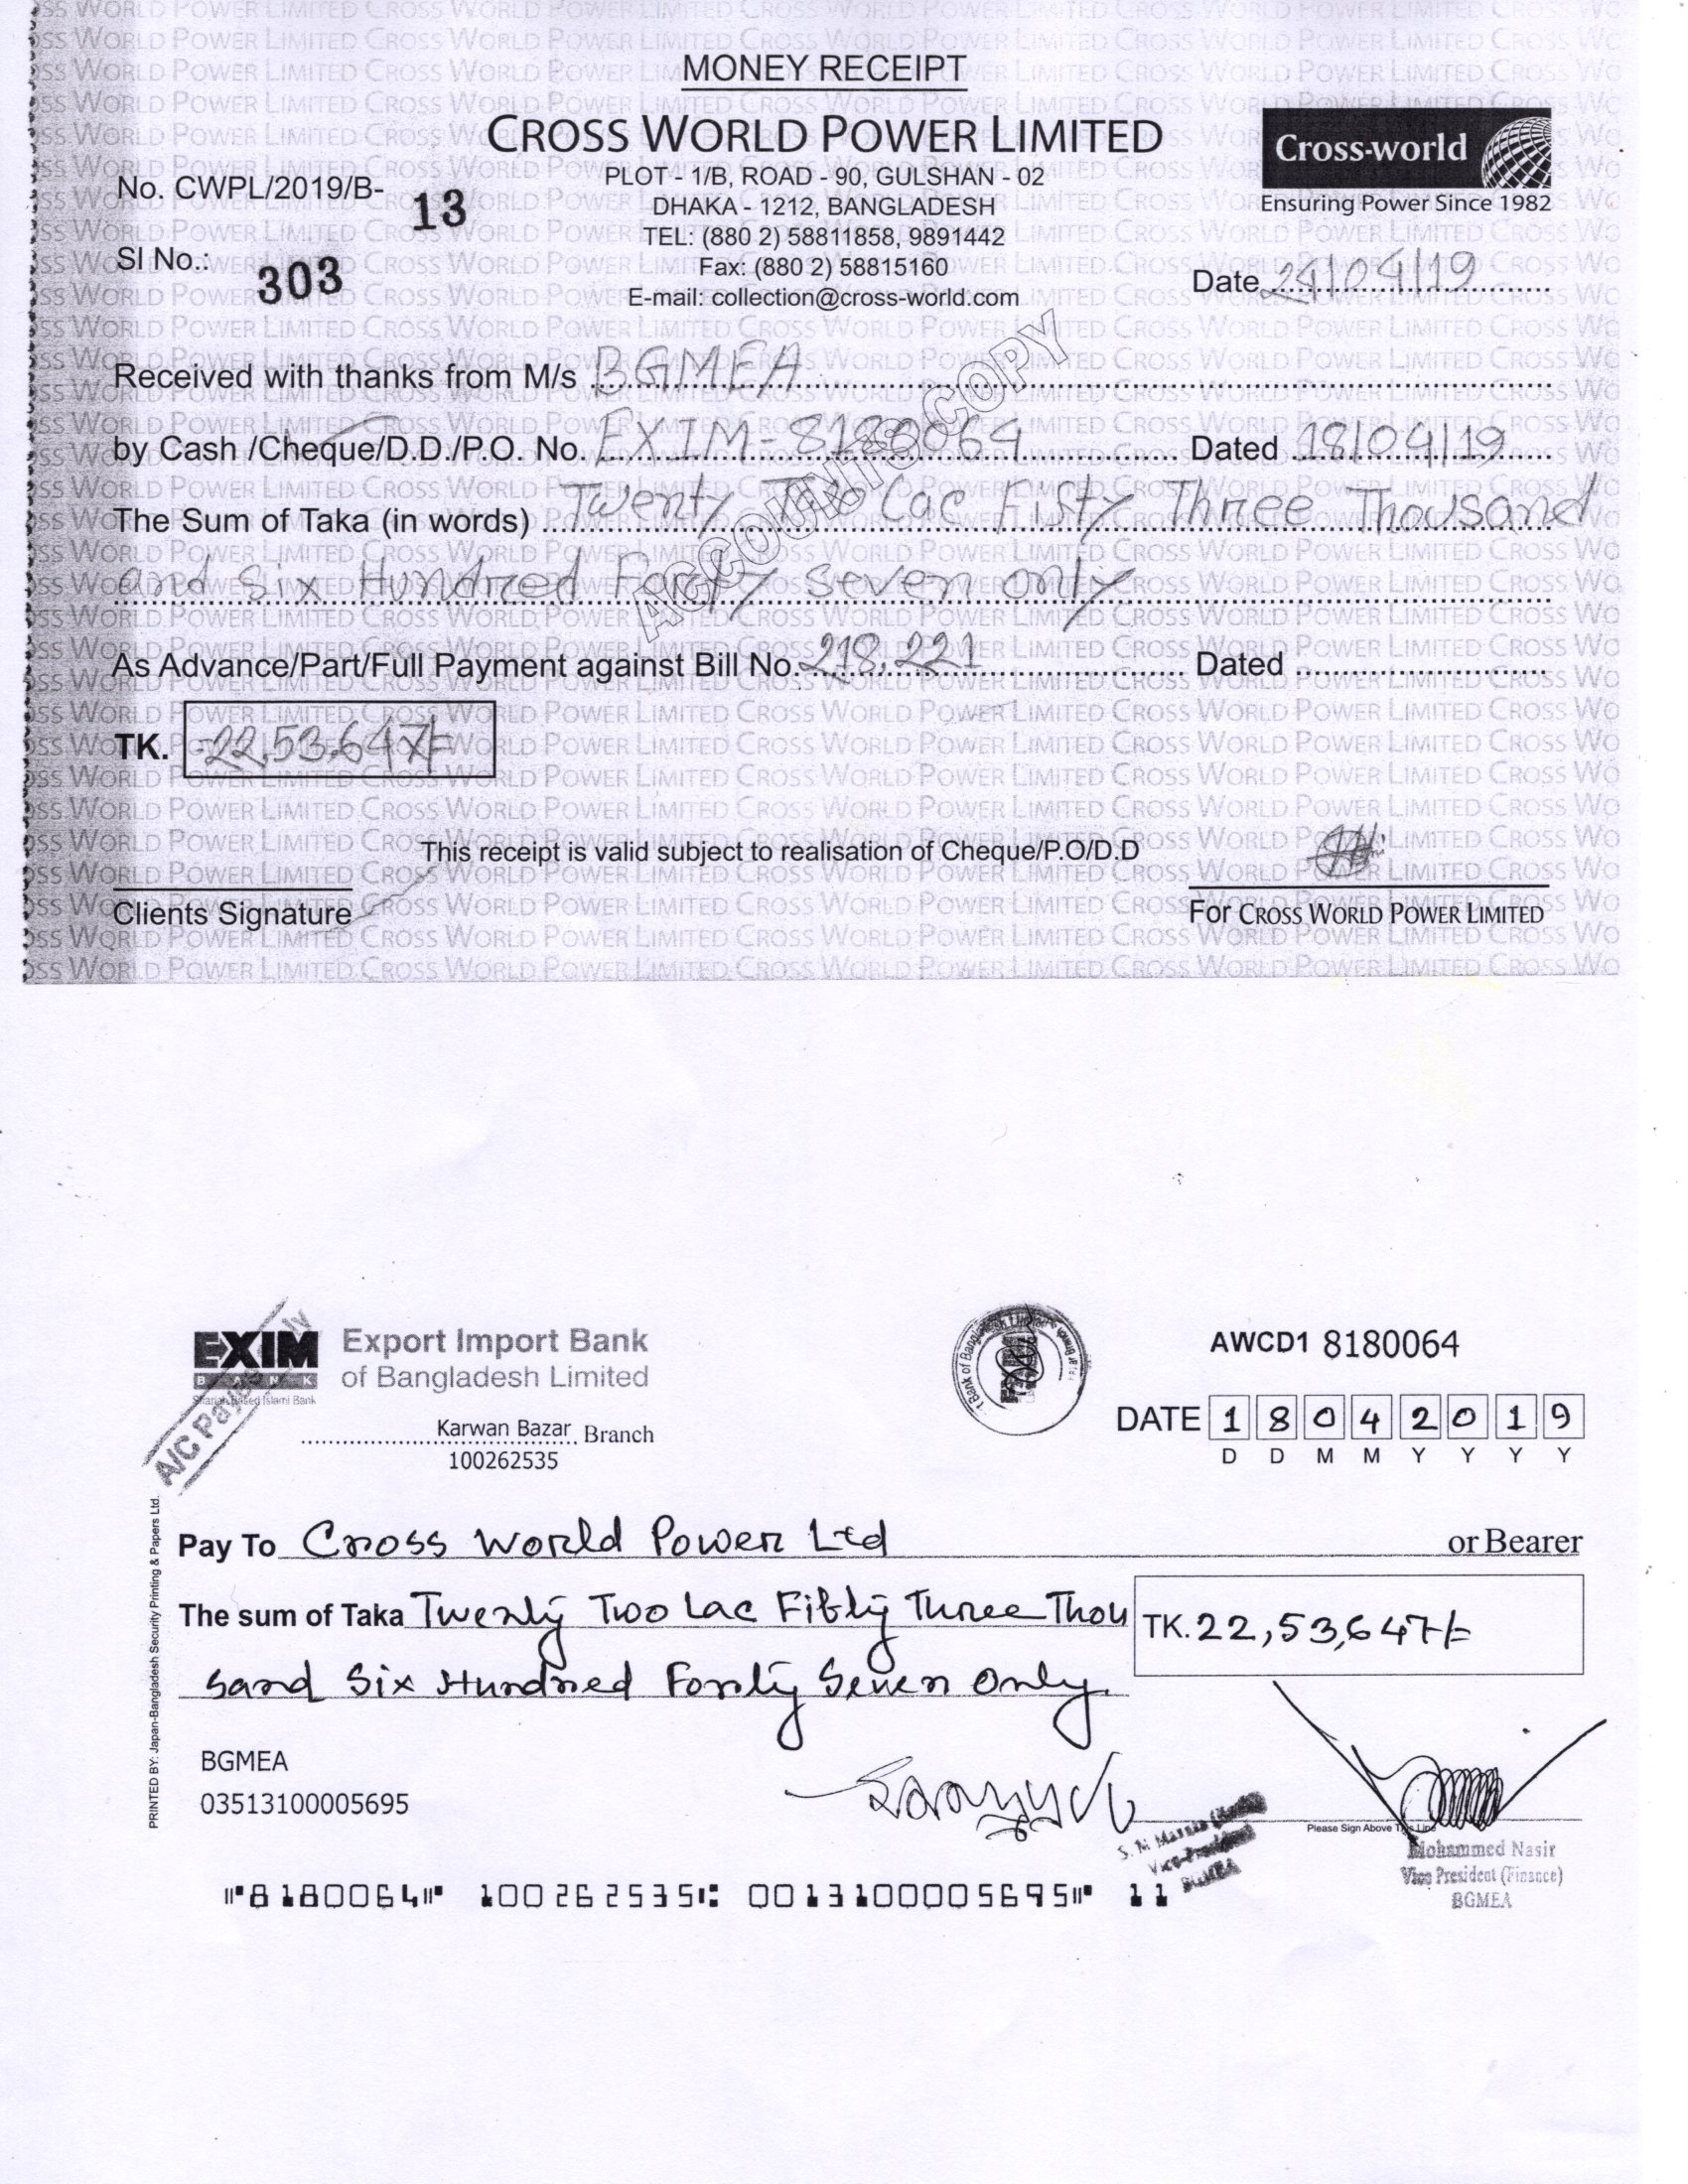 MONEY RECEIPT
CROSS WORLD POWER LIMITED
Cross-world
Ensuring Power Since 1982
PLOT - 1/B, ROAD - 90, GULSHAN - 02
DHAKA - 1212, BANGLADESH
TEL: (880 2) 58811858, 9891442
Fax: (880 2) 58815160
E-mail: collection@cross-world.com
No. CWPL/2019/B- 13
Sl No.: 303
Date 24/04/19
Received with thanks from M/s BGMEA
by Cash /Cheque/D.D./P.O. No. EXIM-8180064 Dated 18/04/19
The Sum of Taka (in words) Twenty Two Lac Fifty Three Thousand
and six Hundred Forty seven only
ACCOUNTS COPY
As Advance/Part/Full Payment against Bill No. 218, 221 Dated
TK. =22,53,647/=
This receipt is valid subject to realisation of Cheque/P.O/D.D
Clients Signature
For CROSS WORLD POWER LIMITED
EXIM
BANK
Shariah Based Islami Bank
Export Import Bank
of Bangladesh Limited
A/C Payee Only
Karwan Bazar Branch
100262535
AWCD1 8180064
DATE 1 8 0 4 2 0 1 9
D D M M Y Y Y Y
Pay To Cross World Power Ltd or Bearer
The sum of Taka Twenty Two Lac Fifty Three Thou
sand Six Hundred Forty Seven Only.
TK. 22,53,647/=
PRINTED BY: Japan-Bangladesh Security Printing & Papers Ltd.
BGMEA
03513100005695
Please Sign Above This Line
Vice-President
BGMEA
Mohammed Nasir
Vice President (Finance)
BGMEA
⑈8180064⑈ 100262535⑆ 0013100005695⑈ 11